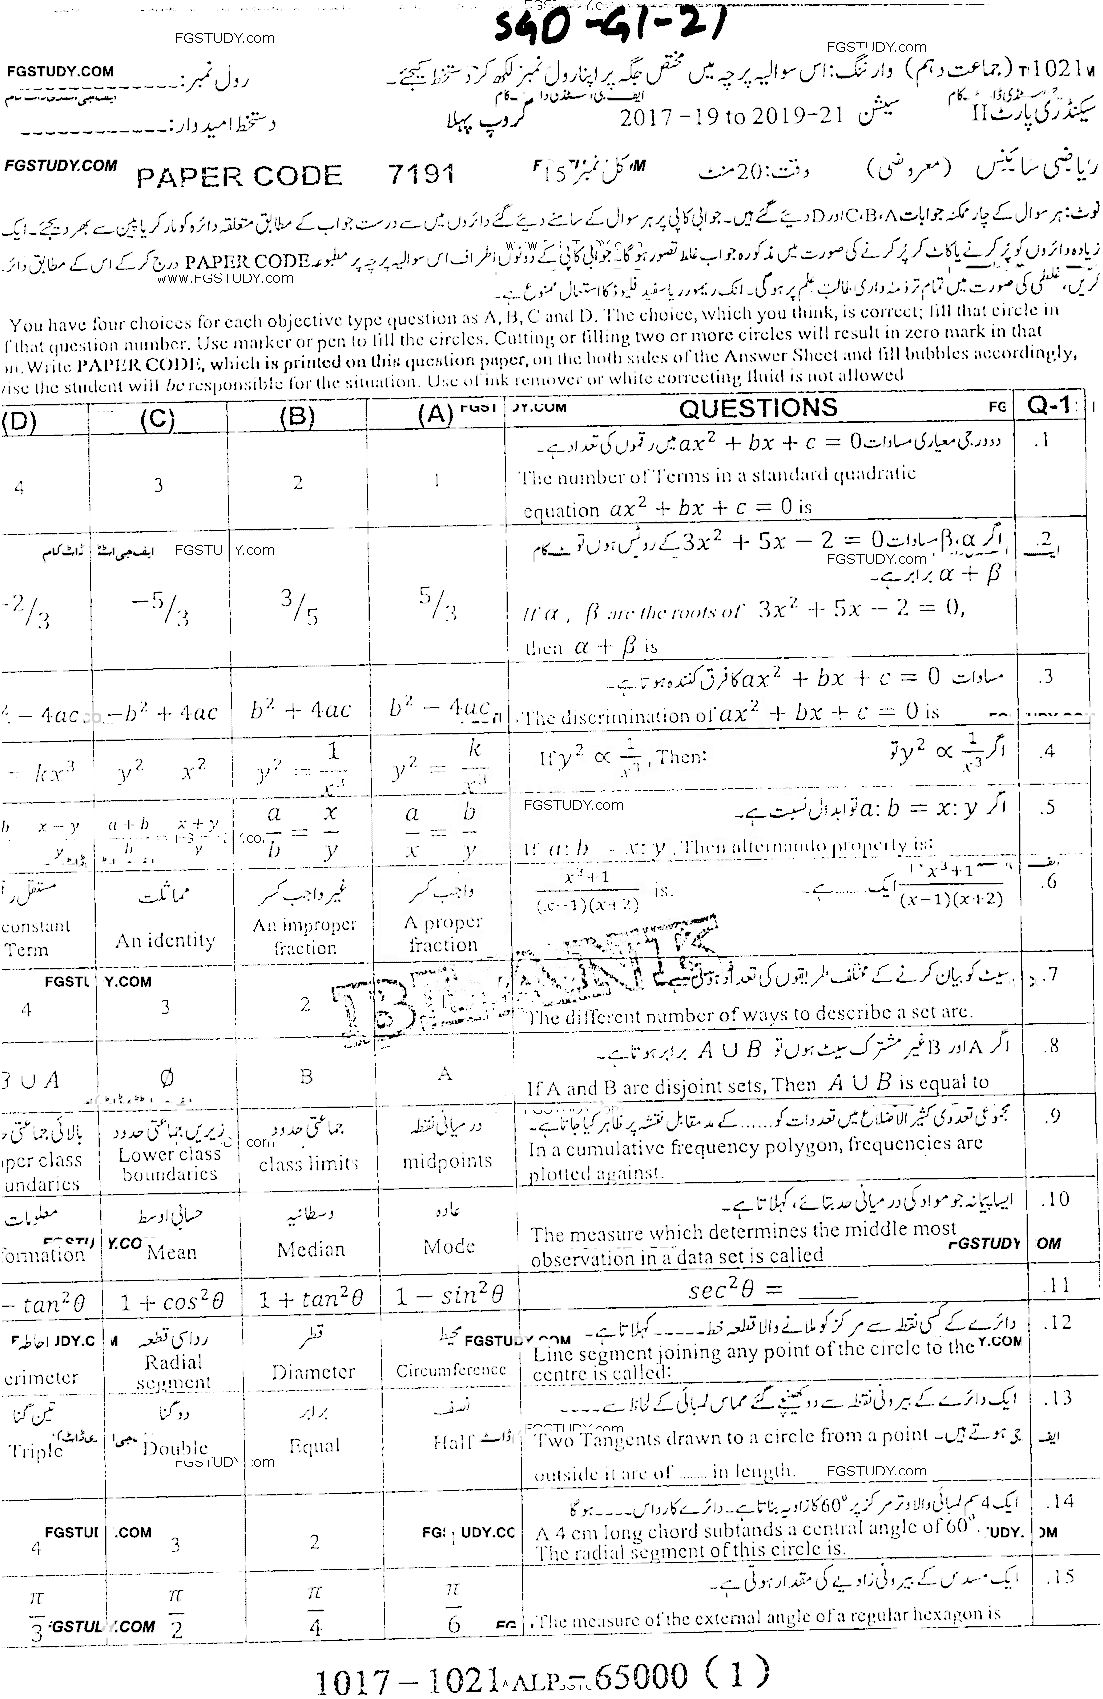 SGD-G1-21
FGSTUDY.com
FGSTUDY.com
FGSTUDY.COM
رول نمبر:
T1021 (جماعت دہم) وارننگ: اس سوالیہ پرچہ میں مختص جگہ پر اپنا رول نمبر لکھ کر دستخط کیجئے۔
سیکنڈری پارٹ II سیشن 2017-19 to 2019-21 گروپ پہلا دستخط امیدوار:
ریاضی سائنس (معروضی) وقت: 20 منٹ کل نمبر 15 PAPER CODE 7191
FGSTUDY.COM
نوٹ: ہر سوال کے چار ممکنہ جوابات C، B، A اور D دیئے گئے ہیں۔ جوابی کاپی پر ہر سوال کے سامنے دیئے گئے دائروں میں سے درست جواب کے مطابق متعلقہ دائرہ کو مارکر یا پین سے بھر دیجئے۔ ایک
زیادہ دائروں کو پُر کرنے یا کاٹ کر پُر کرنے کی صورت میں مذکورہ جواب غلط تصور ہوگا۔ جوابی کاپی کے دونوں اطراف اس سوالیہ پرچہ پر مطبوعہ PAPER CODE درج کر کے اس کے مطابق دائرے
www.FGSTUDY.com
کریں، غلطی کی صورت میں تمام تر ذمہ داری طالب علم پر ہوگی۔ انک ریموور یا سفید فلیوڈ کا استعمال ممنوع ہے۔
You have four choices for each objective type question as A, B, C and D. The choice, which you think, is correct; fill that circle in
f that question number. Use marker or pen to fill the circles. Cutting or filling two or more circles will result in zero mark in that
n. Write PAPER CODE, which is printed on this question paper, on the both sides of the Answer Sheet and fill bubbles accordingly,
vise the student will be responsible for the situation. Use of ink remover or white correcting fluid is not allowed
(D) (C) (B) (A) QUESTIONS Q-1
دو درجی معیاری مساوات ax² + bx + c = 0 میں رقموں کی تعداد ہے۔ .1
4 3 2 1 The number of Terms in a standard quadratic
equation ax² + bx + c = 0 is
اگر α، β مساوات 3x² + 5x − 2 = 0 کے روٹس ہوں تو .2
FGSTUDY.com
α + β برابر ہے۔
-2/3 −5/3 3/5 5/3 If α , β are the roots of 3x² + 5x − 2 = 0,
then α + β is
مساوات ax² + bx + c = 0 کا فرق کنندہ ہوتا ہے۔ .3
² − 4ac −b² + 4ac b² + 4ac b² − 4ac The discrimination of ax² + bx + c = 0 is
اگر y² ∝ 1/x³ تو .4
= kx³ y² x² y² = 1/x³ y² = k/x³ If y² ∝ 1/x³, Then:
اگر a: b = x: y تو ابدال نسبت ہے۔ .5
FGSTUDY.com
b x−y/y a+b/b = x+y/y a/b = x/y a/x = b/y If a: b = x: y, Then alternando property is:
x³+1/(x−1)(x+2) ایک ...... ہے۔ .6
مماثلت غیر واجب کسر واجب کسر x³+1/(x−1)(x+2) is.
constant Term An identity An improper fraction A proper fraction
سیٹ کو بیان کرنے کے مختلف طریقوں کی تعداد ہوتی ہے .7
4 3 2 The different number of ways to describe a set are.
اگر A اور B غیر مشترک سیٹ ہوں تو A ∪ B برابر ہوتا ہے۔ .8
B ∪ A Ø B A If A and B are disjoint sets, Then A ∪ B is equal to
مجموعی تعددی کثیر الاضلاع میں تعددات کو ...... کے مد مقابل نقشہ پر ظاہر کیا جاتا ہے۔ .9
زیریں جماعتی حدود جماعتی حدود درمیانی نقطہ In a cumulative frequency polygon, frequencies are
per class undaries Lower class boundaries class limits midpoints plotted against.
ایسا پیمانہ جو مواد کی درمیانی حد بتائے، کہلاتا ہے۔ .10
معلومات حسابی اوسط وسطانیہ عادہ The measure which determines the middle most
formation Mean Median Mode observation in a data set is called
− tan²θ 1 + cos²θ 1 + tan²θ 1 − sin²θ sec²θ = ____ .11
دائرے کے کسی نقطہ سے مرکز کو ملانے والا قطعہ خط ----- کہلاتا ہے۔ .12
احاطہ رداسی قطعہ قطر محیط Line segment joining any point of the circle to the
erimeter Radial segment Diameter Circumference centre is called:
ایک دائرے کے بیرونی نقطہ سے دو کھینچے گئے مماس لمبائی کے لحاظ سے ---- .13
تین گنا دو گنا برابر نصف ہوتے ہیں۔ Two Tangents drawn to a circle from a point
Triple Double Equal Half outside it are of ...... in length.
FGSTUDY.com
ایک 4 سم لمبائی والا وتر مرکز پر 60° کا زاویہ بناتا ہے۔ دائرے کا رداس ---- ہوگا .14
4 3 2 A 4 cm long chord subtands a central angle of 60°.
The radial segment of this circle is.
ایک مسدس کے بیرونی زاویے کی مقدار ہوتی ہے۔ .15
π/3 π/2 π/4 π/6 The measure of the external angle of a regular hexagon is
1017 – 1021 ALP 65000 (1)